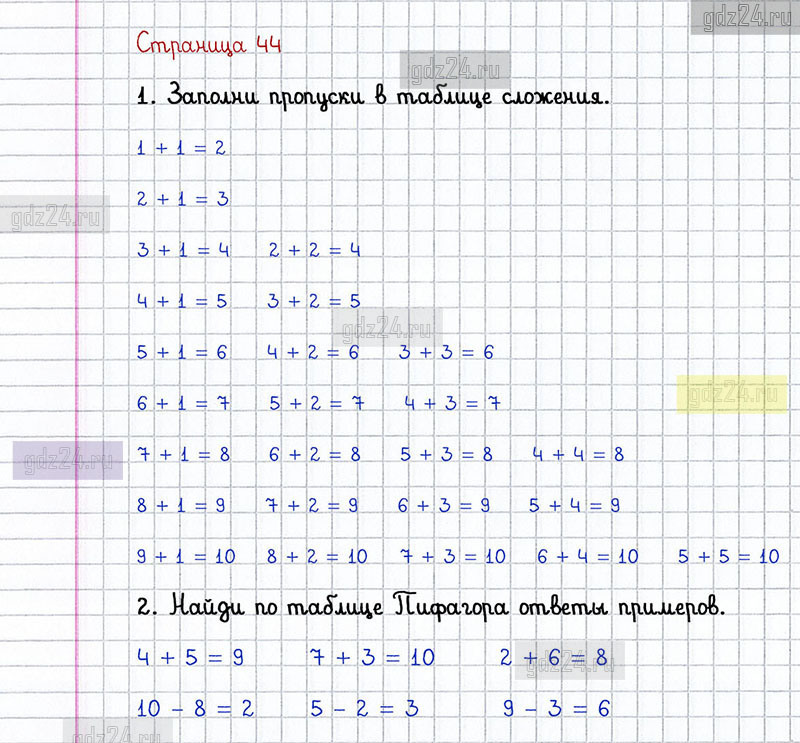 gdz24.ru
Страница 44
gdz24.ru
1. Заполни пропуски в таблице сложения.
1 + 1 = 2
2 + 1 = 3
gdz24.ru
3 + 1 = 4 2 + 2 = 4
4 + 1 = 5 3 + 2 = 5
gdz24.ru
5 + 1 = 6 4 + 2 = 6 3 + 3 = 6
gdz24.ru
6 + 1 = 7 5 + 2 = 7 4 + 3 = 7
7 + 1 = 8 6 + 2 = 8 5 + 3 = 8 4 + 4 = 8
gdz24.ru
8 + 1 = 9 7 + 2 = 9 6 + 3 = 9 5 + 4 = 9
9 + 1 = 10 8 + 2 = 10 7 + 3 = 10 6 + 4 = 10 5 + 5 = 10
2. Найди по таблице Пифагора ответы примеров.
4 + 5 = 9 7 + 3 = 10 2 + 6 = 8
gdz24.ru
10 - 8 = 2 5 - 2 = 3 9 - 3 = 6
gdz24.ru